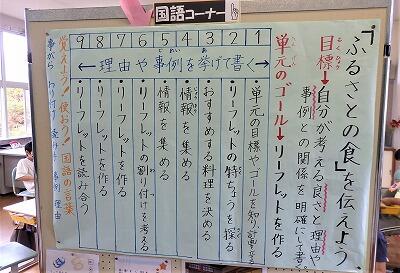 国語コーナー
「ふるさとの食」を伝えよう
目標→自分が考える良さと理由や
事例との関係を明確にして書く
単元のゴール→リーフレットを作る
←理由や事例を挙げて書く→
1・単元の目標やゴールを知り、計画を立てる
2・リーフレットの特ちょうを探る
3・おすすめする料理を決める
4・情報を集める
5・情報を集める
6・リーフレットの割り付けを考える
7・リーフレットを作る
8・リーフレットを作る
9・リーフレットを読み合う
覚えよう!使おう!国語の言葉
事がら わり付け 読み手 事例 理由